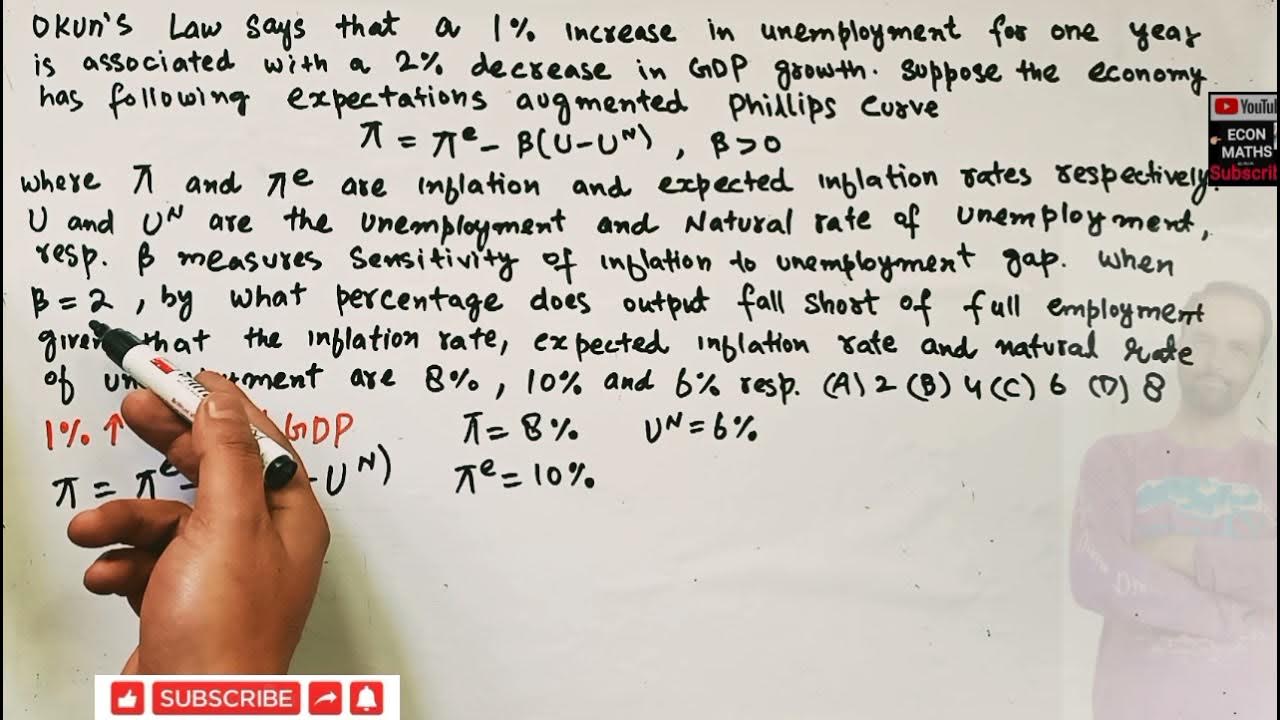 Okun's Law says that a 1% increase in unemployment for one year
is associated with a 2% decrease in GDP growth. Suppose the economy
has following expectations augmented Phillips Curve
π = πᵉ - β(U-Uᴺ) , β>0
where π and πᵉ are inflation and expected inflation rates respectively.
U and Uᴺ are the unemployment and Natural rate of unemployment,
resp. β measures sensitivity of inflation to unemployment gap. When
β = 2, by what percentage does output fall short of full employment
given that the inflation rate, expected inflation rate and natural rate
of are 8%, 10% and 6% resp. (A) 2 (B) 4 (C) 6 (D) 8
1% ↑ GDP π = 8% Uᴺ = 6%
π = πᵉ - - Uᴺ) πᵉ = 10%
YouTub
ECON
MATHS
Subscrib
SUBSCRIBE